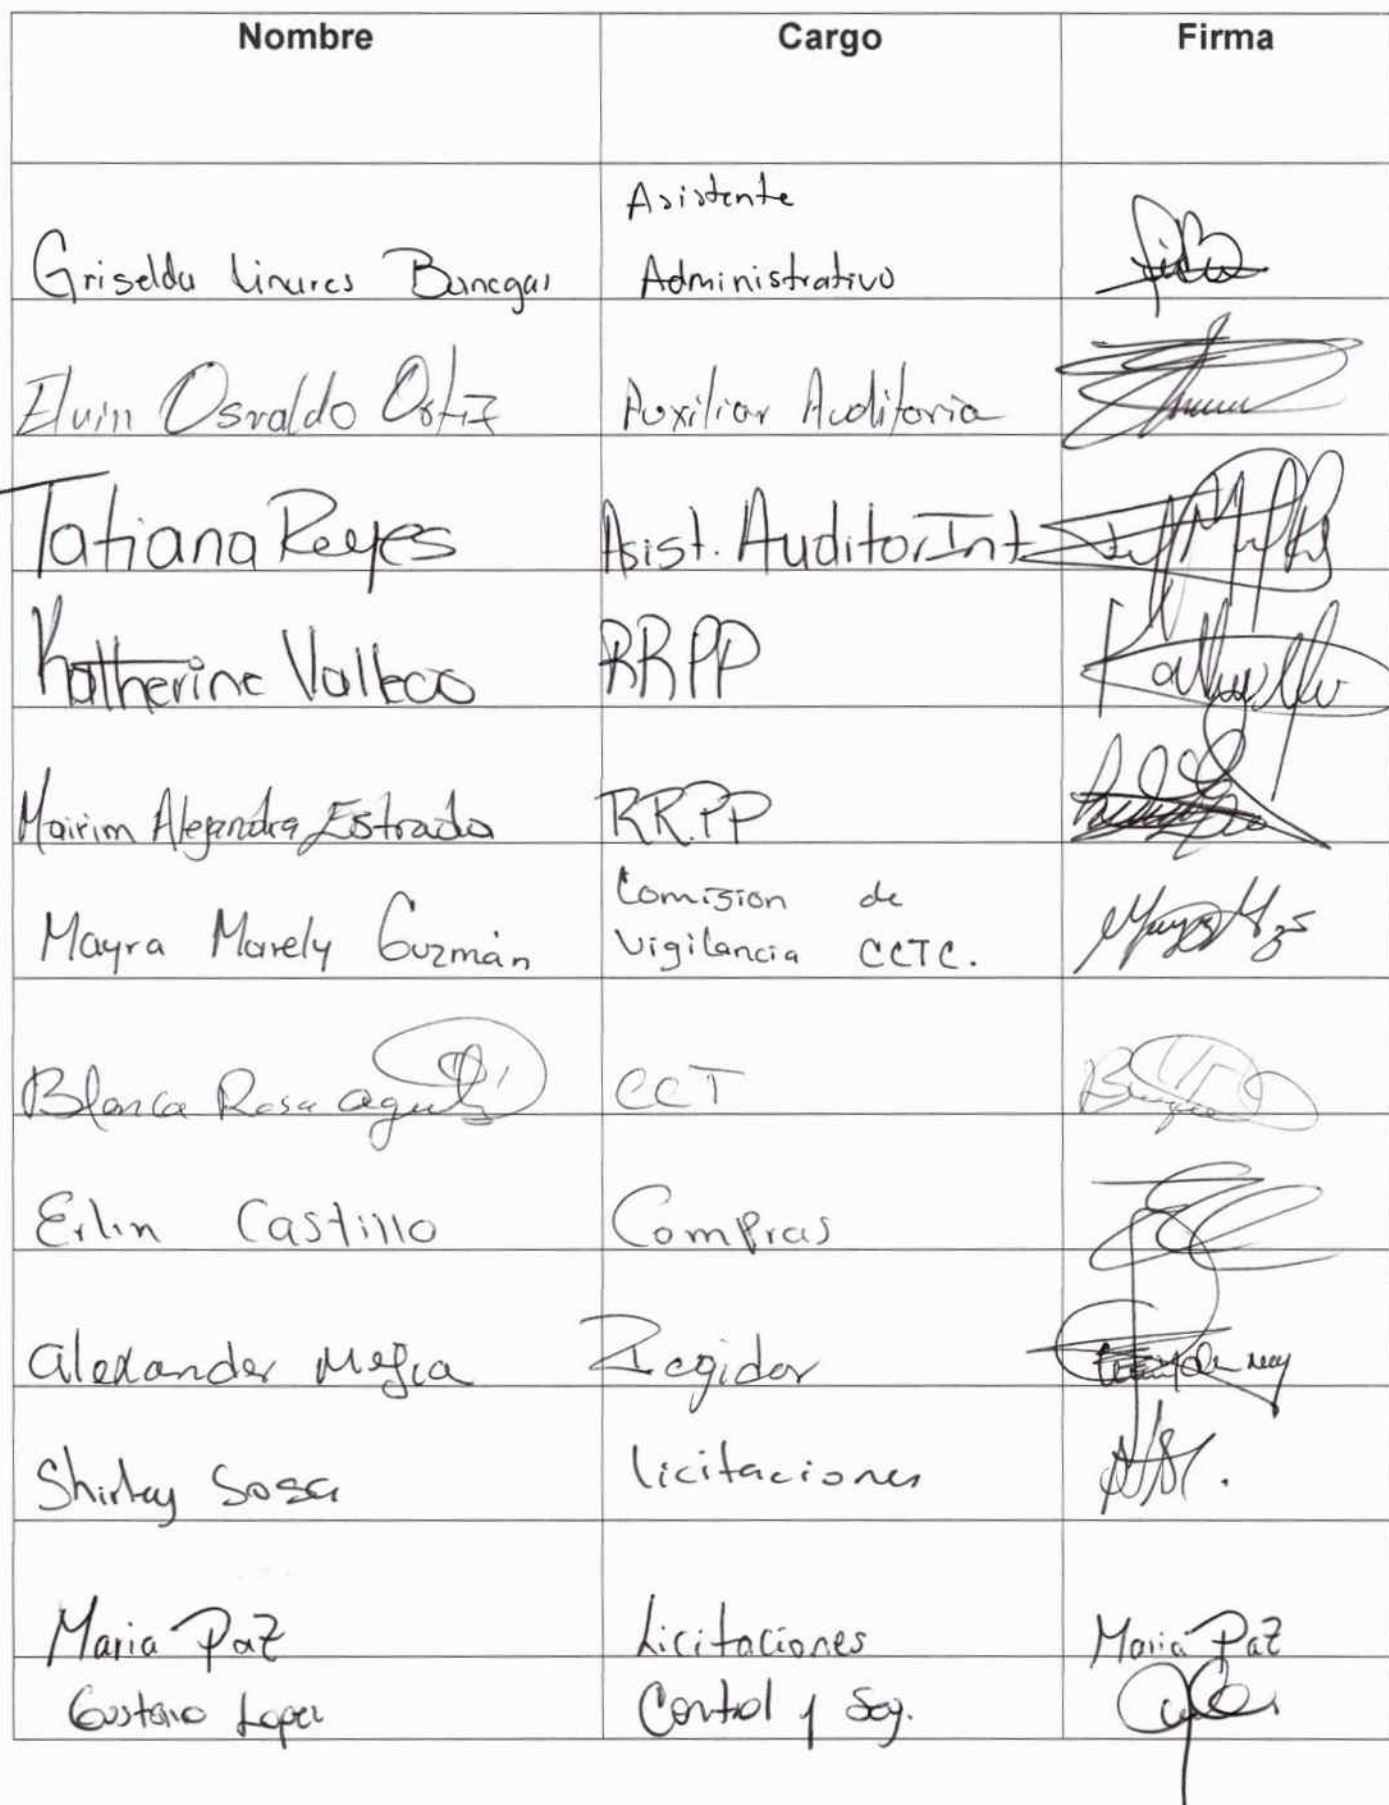 Nombre Cargo Firma
Asistente
Griselda Linares Banegas Administrativo
Elvin Osvaldo Ortiz Auxiliar Auditoria
Tatiana Reyes Asist. Auditor Int
Katherine Vallecio RRPP
Mairim Alejandra Estrada RR.PP
Comision de
Mayra Marely Guzmán Vigilancia CCTC.
Blanca Rosa CCT
Erlin Castillo Compras
Alexander Mejia Regidor
Shirley Sosa licitaciones
Maria Paz Licitaciones Maria Paz
Gustavo Lopez Control y Seg.